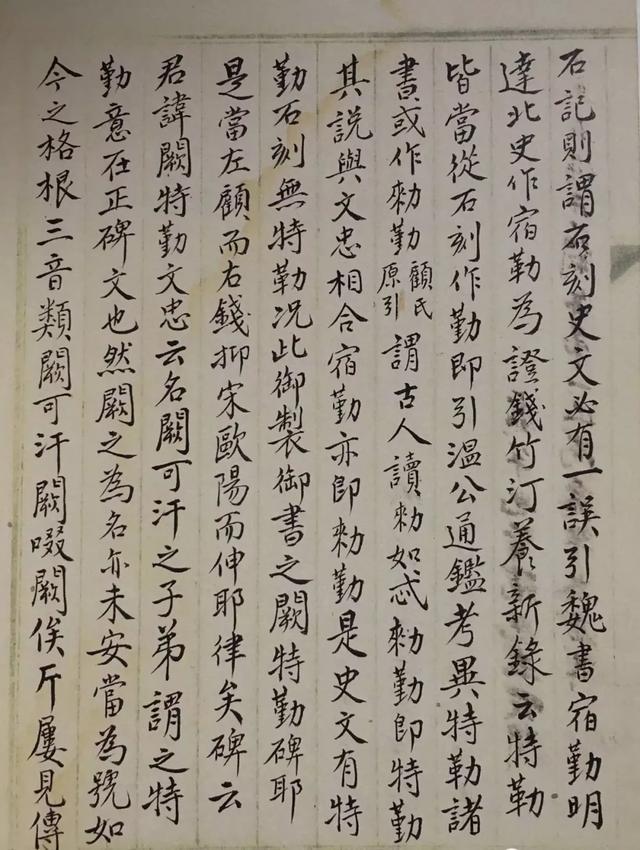 石記則謂石刻史文必有一誤引魏書宿勤明
達北史作宿勒為證錢竹汀養新錄云特勒
皆當從石刻作勤即引溫公通鑑考異特勒諸
書或作敕勤顧氏原引謂古人讀敕如忒敕勤即特勤
其説與文忠相合宿勤亦即敕勤是史文有特
勤石刻無特勒况此御製御書之闕特勤碑耶
是當左顧而右錢抑宋歐陽而伸耶律矣碑云
君諱闕特勤文忠云名闕可汗之子弟謂之特
勤意在正碑文也然闕之為名亦未安當為號如
今之格根三音類闕可汗闕啜闕俟斤屢見傳